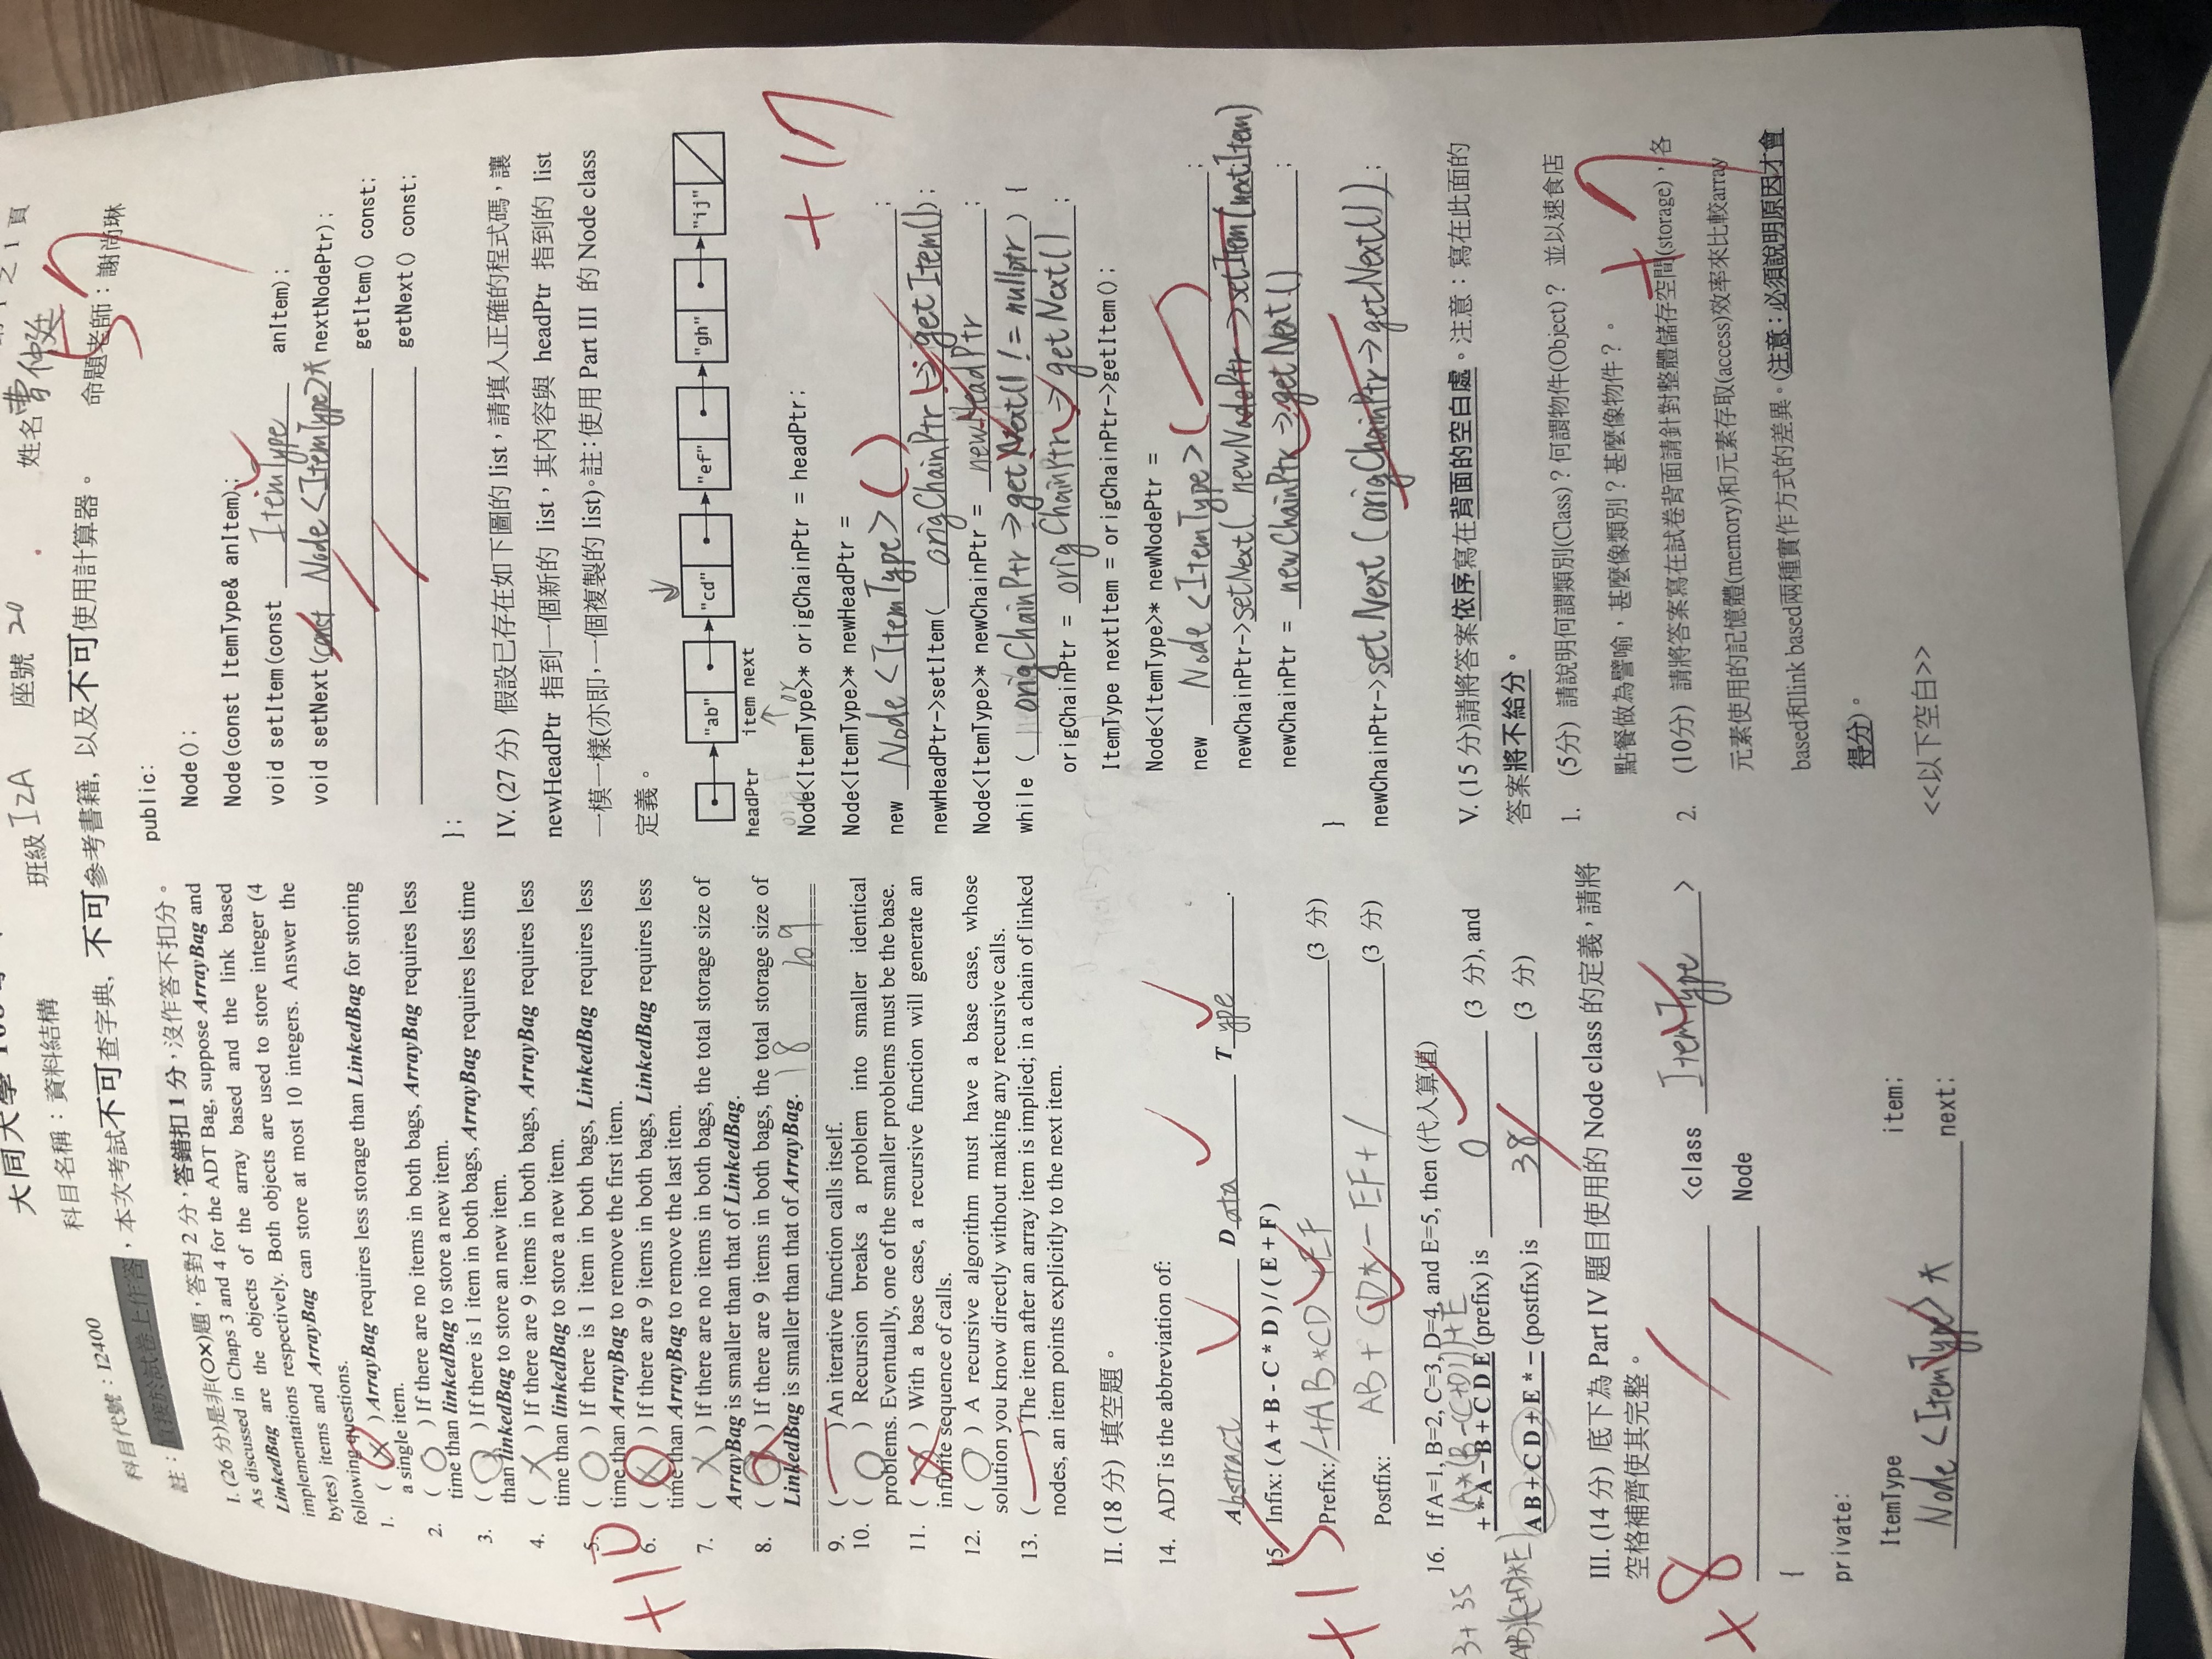 大同大學
科目代號：I2400
科目名稱：資料結構
班級 I2A
座號 20
姓名 曹仲廷
第 1 之 1 頁
57
註：直接於試卷上作答，本次考試不可查字典, 不可參考書籍, 以及不可使用計算器。
命題老師：謝尚琳
I. (26 分)是非(O×)題，答對 2 分，答錯扣 1 分，沒作答不扣分。
As discussed in Chaps 3 and 4 for the ADT Bag, suppose ArrayBag and
LinkedBag are the objects of the array based and the link based
implementations respectively. Both objects are used to store integer (4
bytes) items and ArrayBag can store at most 10 integers. Answer the
following questions.
1. ( X ) ArrayBag requires less storage than LinkedBag for storing
a single item.
2. ( O ) If there are no items in both bags, ArrayBag requires less
time than linkedBag to store a new item.
3. ( O ) If there is 1 item in both bags, ArrayBag requires less time
than linkedBag to store an new item.
4. ( X ) If there are 9 items in both bags, ArrayBag requires less
time than linkedBag to store a new item.
5. ( O ) If there is 1 item in both bags, LinkedBag requires less
time than ArrayBag to remove the first item.
+10
6. ( X ) If there are 9 items in both bags, LinkedBag requires less
time than ArrayBag to remove the last item.
7. ( X ) If there are no items in both bags, the total storage size of
ArrayBag is smaller than that of LinkedBag.
8. ( O ) If there are 9 items in both bags, the total storage size of
LinkedBag is smaller than that of ArrayBag. 18
9. ( ) An iterative function calls itself.
10. ( O ) Recursion breaks a problem into smaller identical
problems. Eventually, one of the smaller problems must be the base.
11. ( O ) With a base case, a recursive function will generate an
infinite sequence of calls.
12. ( O ) A recursive algorithm must have a base case, whose
solution you know directly without making any recursive calls.
13. ( ) The item after an array item is implied; in a chain of linked
nodes, an item points explicitly to the next item.
II. (18 分) 填空題。
14. ADT is the abbreviation of:
Abstract Data Type.
15. Infix: ( A + B - C * D ) / ( E + F )
+15
Prefix: /-+AB*CD +EF (3 分)
Postfix: AB+ CD*- EF+/ (3 分)
16. If A=1, B=2, C=3, D=4, and E=5, then (代入算值)
3+ 35 (A*(B-(C+D)))+E
+ * A – B + C D E (prefix) is 0 (3 分), and
A B + C D + E * – (postfix) is 38 (3 分)
III. (14 分) 底下為 Part IV 題目使用的 Node class 的定義，請將
空格補齊使其完整。
+8
<class ItemType >
Node
{
private:
ItemType item;
Node <ItemType> * next;
public:
Node();
Node(const ItemType& anItem);
void setItem(const ItemType anItem);
void setNext(const Node <ItemType>* nextNodePtr);
getItem() const;
getNext() const;
};
IV. (27 分) 假設已存在如下圖的 list，請填入正確的程式碼，讓
newHeadPtr 指到一個新的 list，其內容與 headPtr 指到的 list
一模一樣(亦即，一個複製的 list)。註：使用 Part III 的 Node class
定義。
"ab" "cd" "ef" "gh" "ij"
headPtr item next
Node<ItemType>* origChainPtr = headPtr;
+17
Node<ItemType>* newHeadPtr =
new Node <ItemType> ( ) ;
newHeadPtr->setItem( origChainPtr -> getItem() );
Node<ItemType>* newChainPtr = newHeadPtr ;
while ( origChainPtr -> getNext() != nullptr ) {
origChainPtr = origChainPtr -> getNext() ;
ItemType nextItem = origChainPtr->getItem();
Node<ItemType>* newNodePtr =
new Node <ItemType> ( ) ;
newChainPtr->setNext( newNodePtr -> setItem(nextItem)
newChainPtr = newChainPtr -> getNext() ;
}
newChainPtr->setNext (origChainPtr -> getNext()) ;
V. (15 分)請將答案依序寫在背面的空白處。注意：寫在此面的
答案將不給分。
1. (5分) 請說明何謂類別(Class)？何謂物件(Object)？ 並以速食店
點餐做為譬喻，甚麼像類別？甚麼像物件？。
+7
2. (10分) 請將答案寫在試卷背面請針對整體儲存空間(storage)，各
元素使用的記憶體(memory)和元素存取(access)效率來比較array
based和link based兩種實作方式的差異。(注意：必須說明原因才會
得分)。
<<以下空白>>